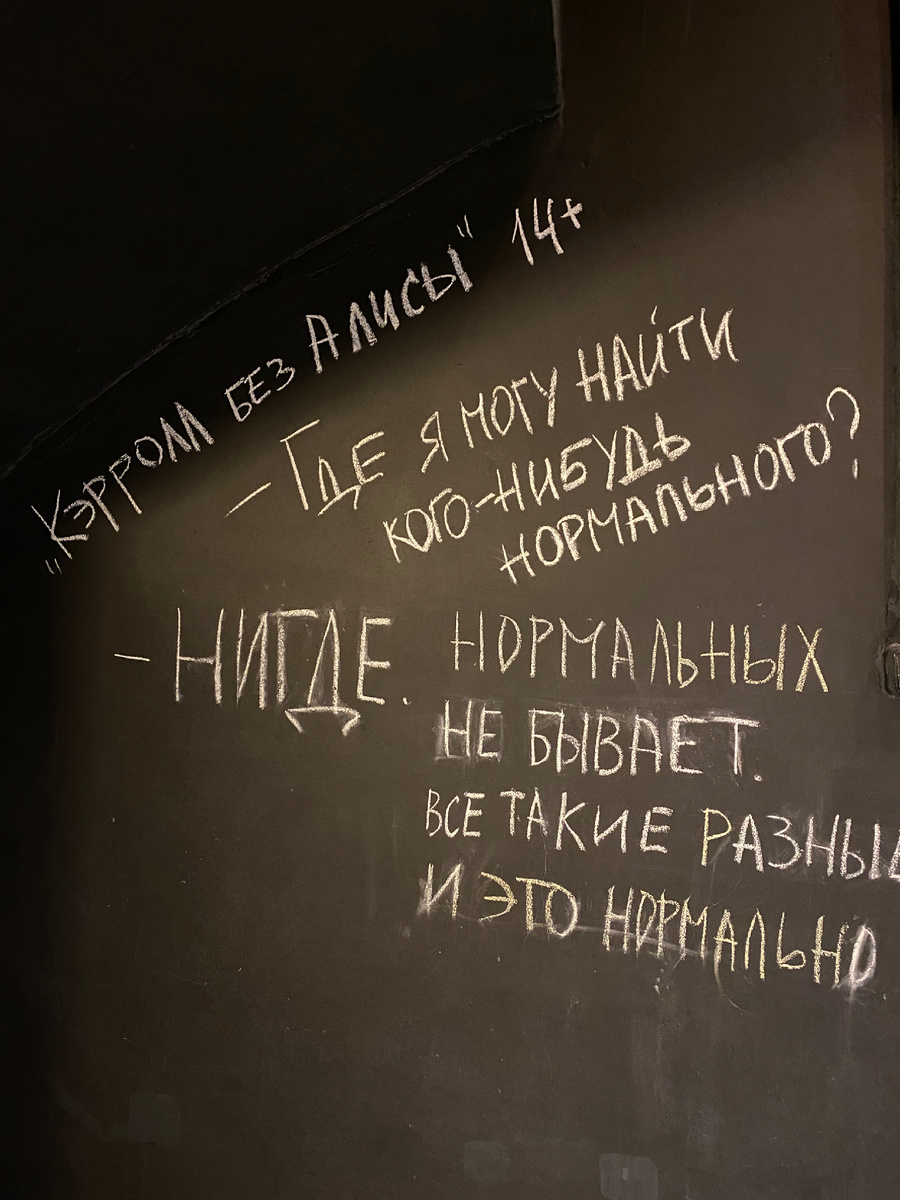 „Кэрролл без Алисы" 14+
– Где я могу найти
кого-нибудь
нормального?
– НИГДЕ. НОРМАЛЬНЫХ
НЕ БЫВАЕТ.
ВСЕ ТАКИЕ РАЗНЫЕ
И ЭТО НОРМАЛЬНО